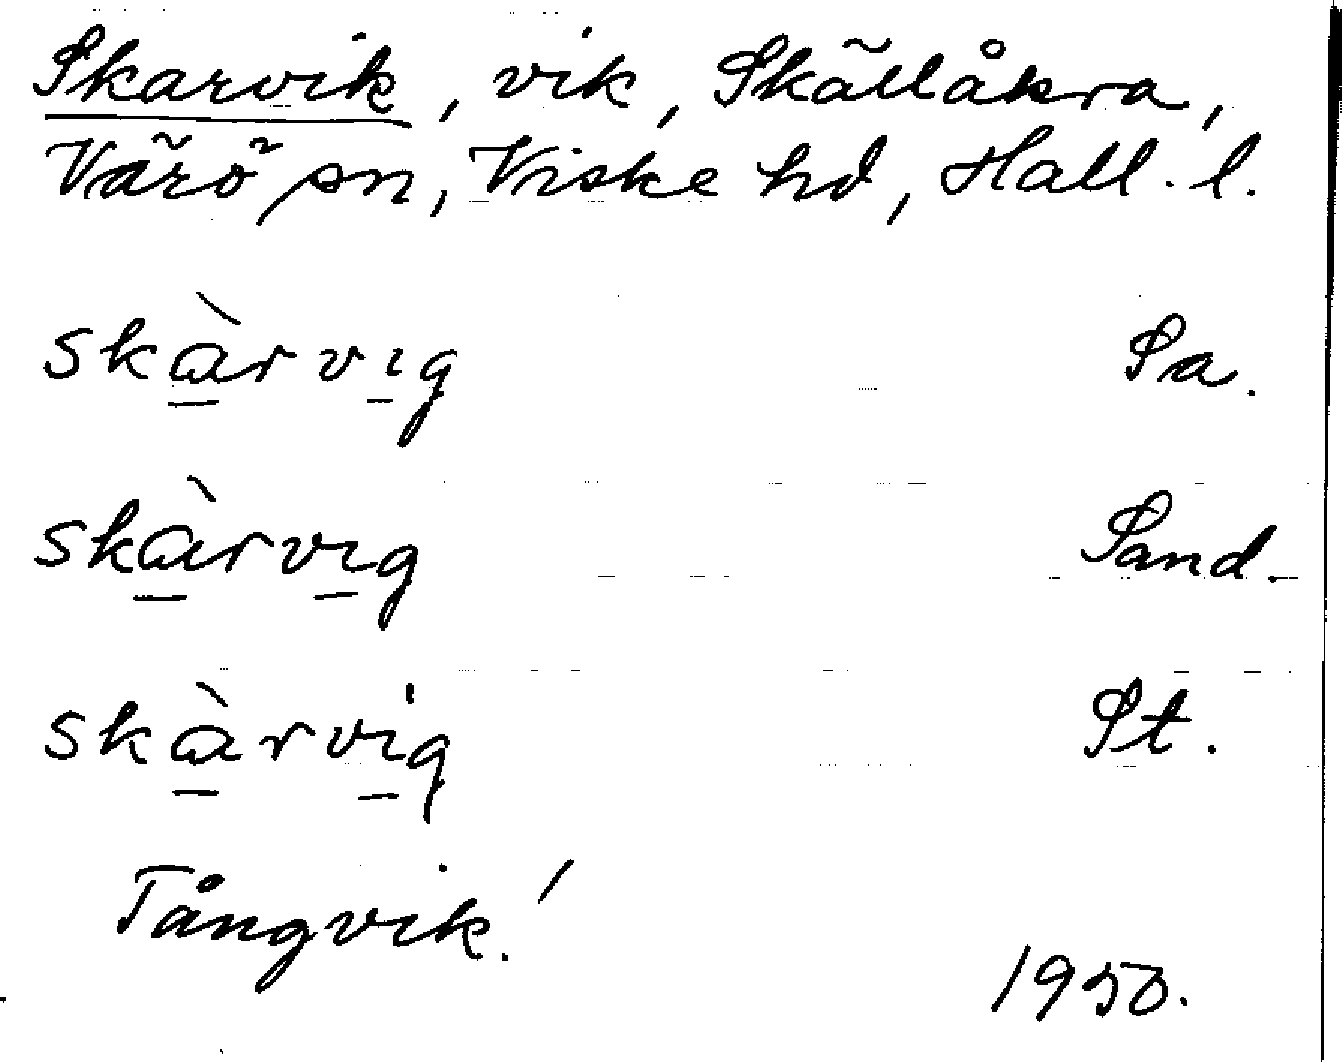 Skarvik, vik, Skällåkra,
Värö sn, Viske hd, Hall. l.
skàrvıg Sa.
skàrvıg Sand.
skàrvig St.
Tångvik!
1950.